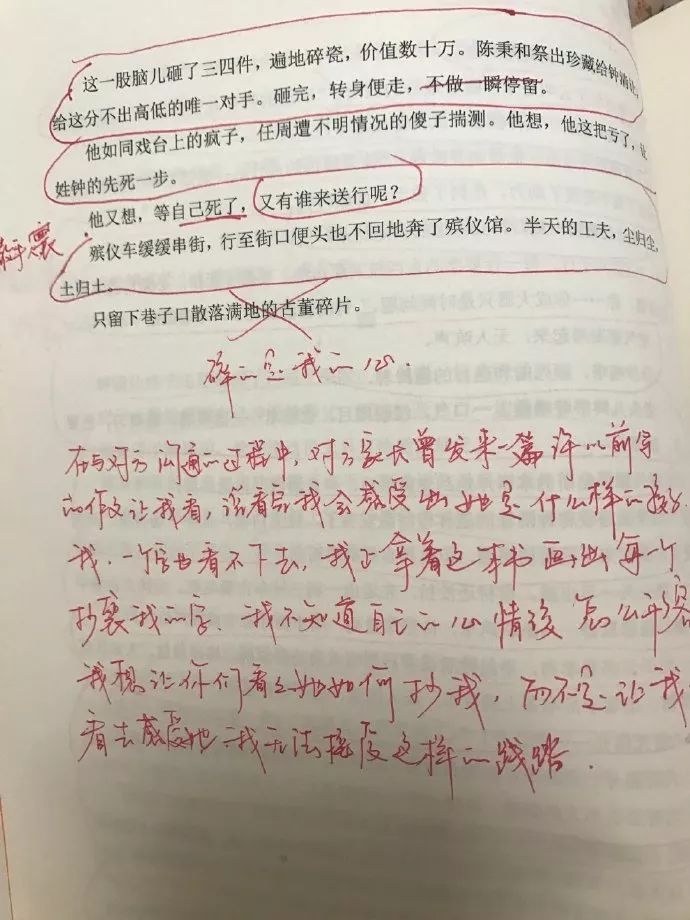 这一股脑儿砸了三四件，遍地碎瓷，价值数十万。陈秉和祭出珍藏给钟
给这分不出高低的唯一对手。砸完，转身便走，不做一瞬停留。
他如同戏台上的疯子，任周遭不明情况的傻子揣测。他想，他这把亏了，让
姓钟的先死一步。
他又想，等自己死了，又有谁来送行呢？
殡仪车缓缓串街，行至街口便头也不回地奔了殡仪馆。半天的工夫，尘归尘，
土归土。
只留下巷子口散落满地的古董碎片。
碎的是我的心.
在与对方沟通的过程中，对方家长曾发来一篇许以前写
的作文让我看，说看完我会感受出她是什么样的孩子
我，一个字也看不下去，我正拿着这本书画出每一个
抄袭我的字，我不知道自己的心情该怎么平复
我想让你们看看她如何抄我，而不是让我
看去感受她，我无法接受这样的践踏.